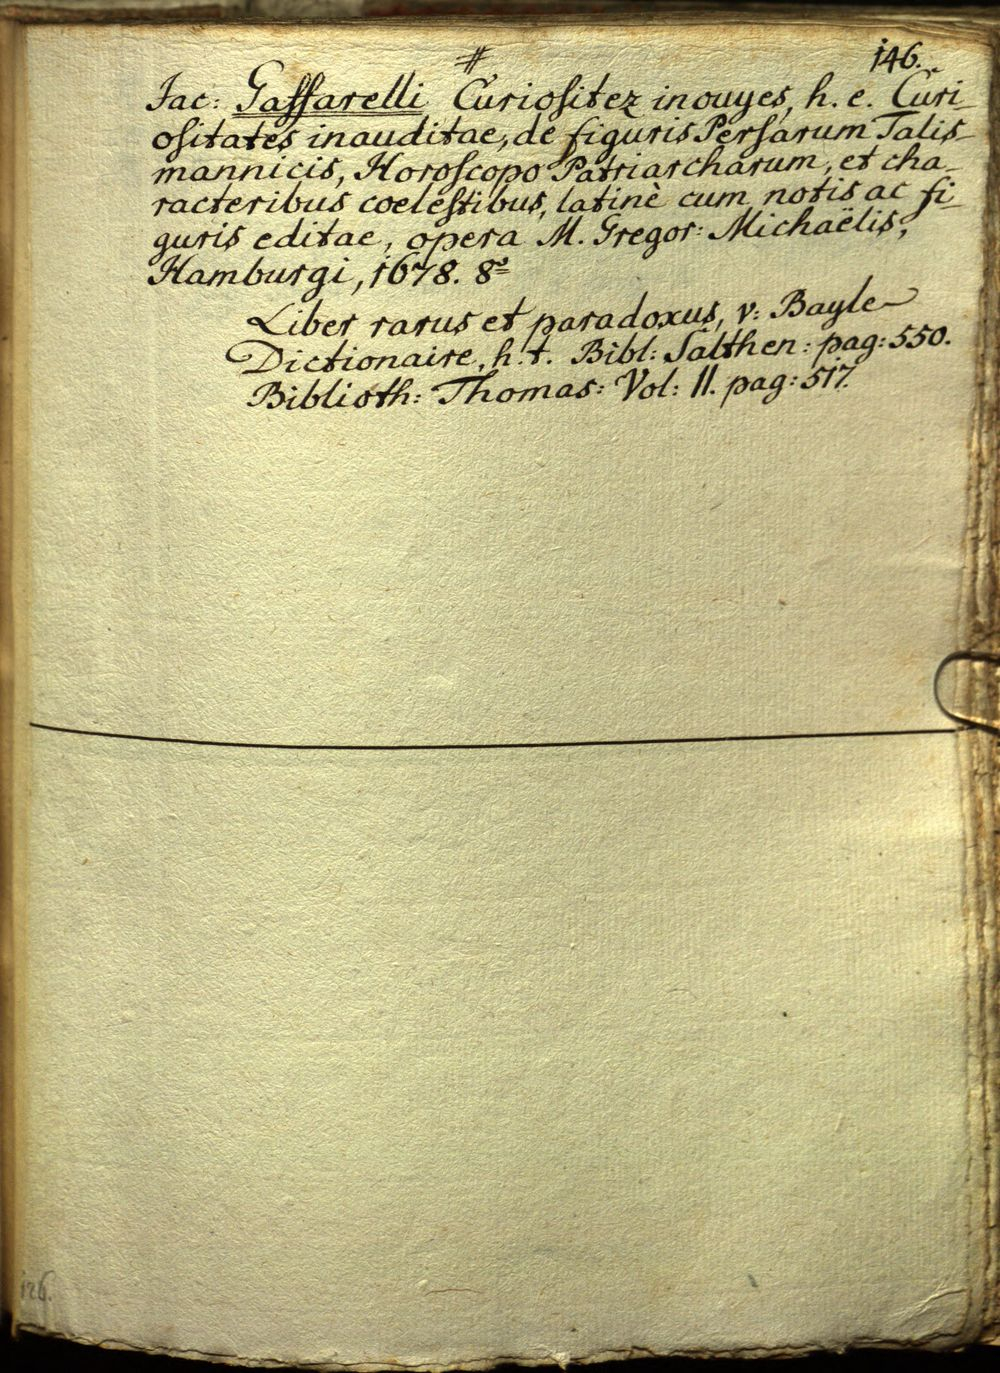 #
146.
Jac: Gaffarelli Curiositez inouyes, h. e. Curi-
ositates inauditae, de figuris Persarum Talis-
mannicis, Horoscopo Patriarcharum, et cha-
racteribus coelestibus, latinè cum notis ac fi-
guris editae, opera M. Gregor: Michaëlis,
Hamburgi, 1678. 8º
Liber rarus et paradoxus, v: Bayle
Dictionaire, h. t. Bibl: Salthen: pag: 550.
Biblioth: Thomas: Vol: II. pag: 517.
126.